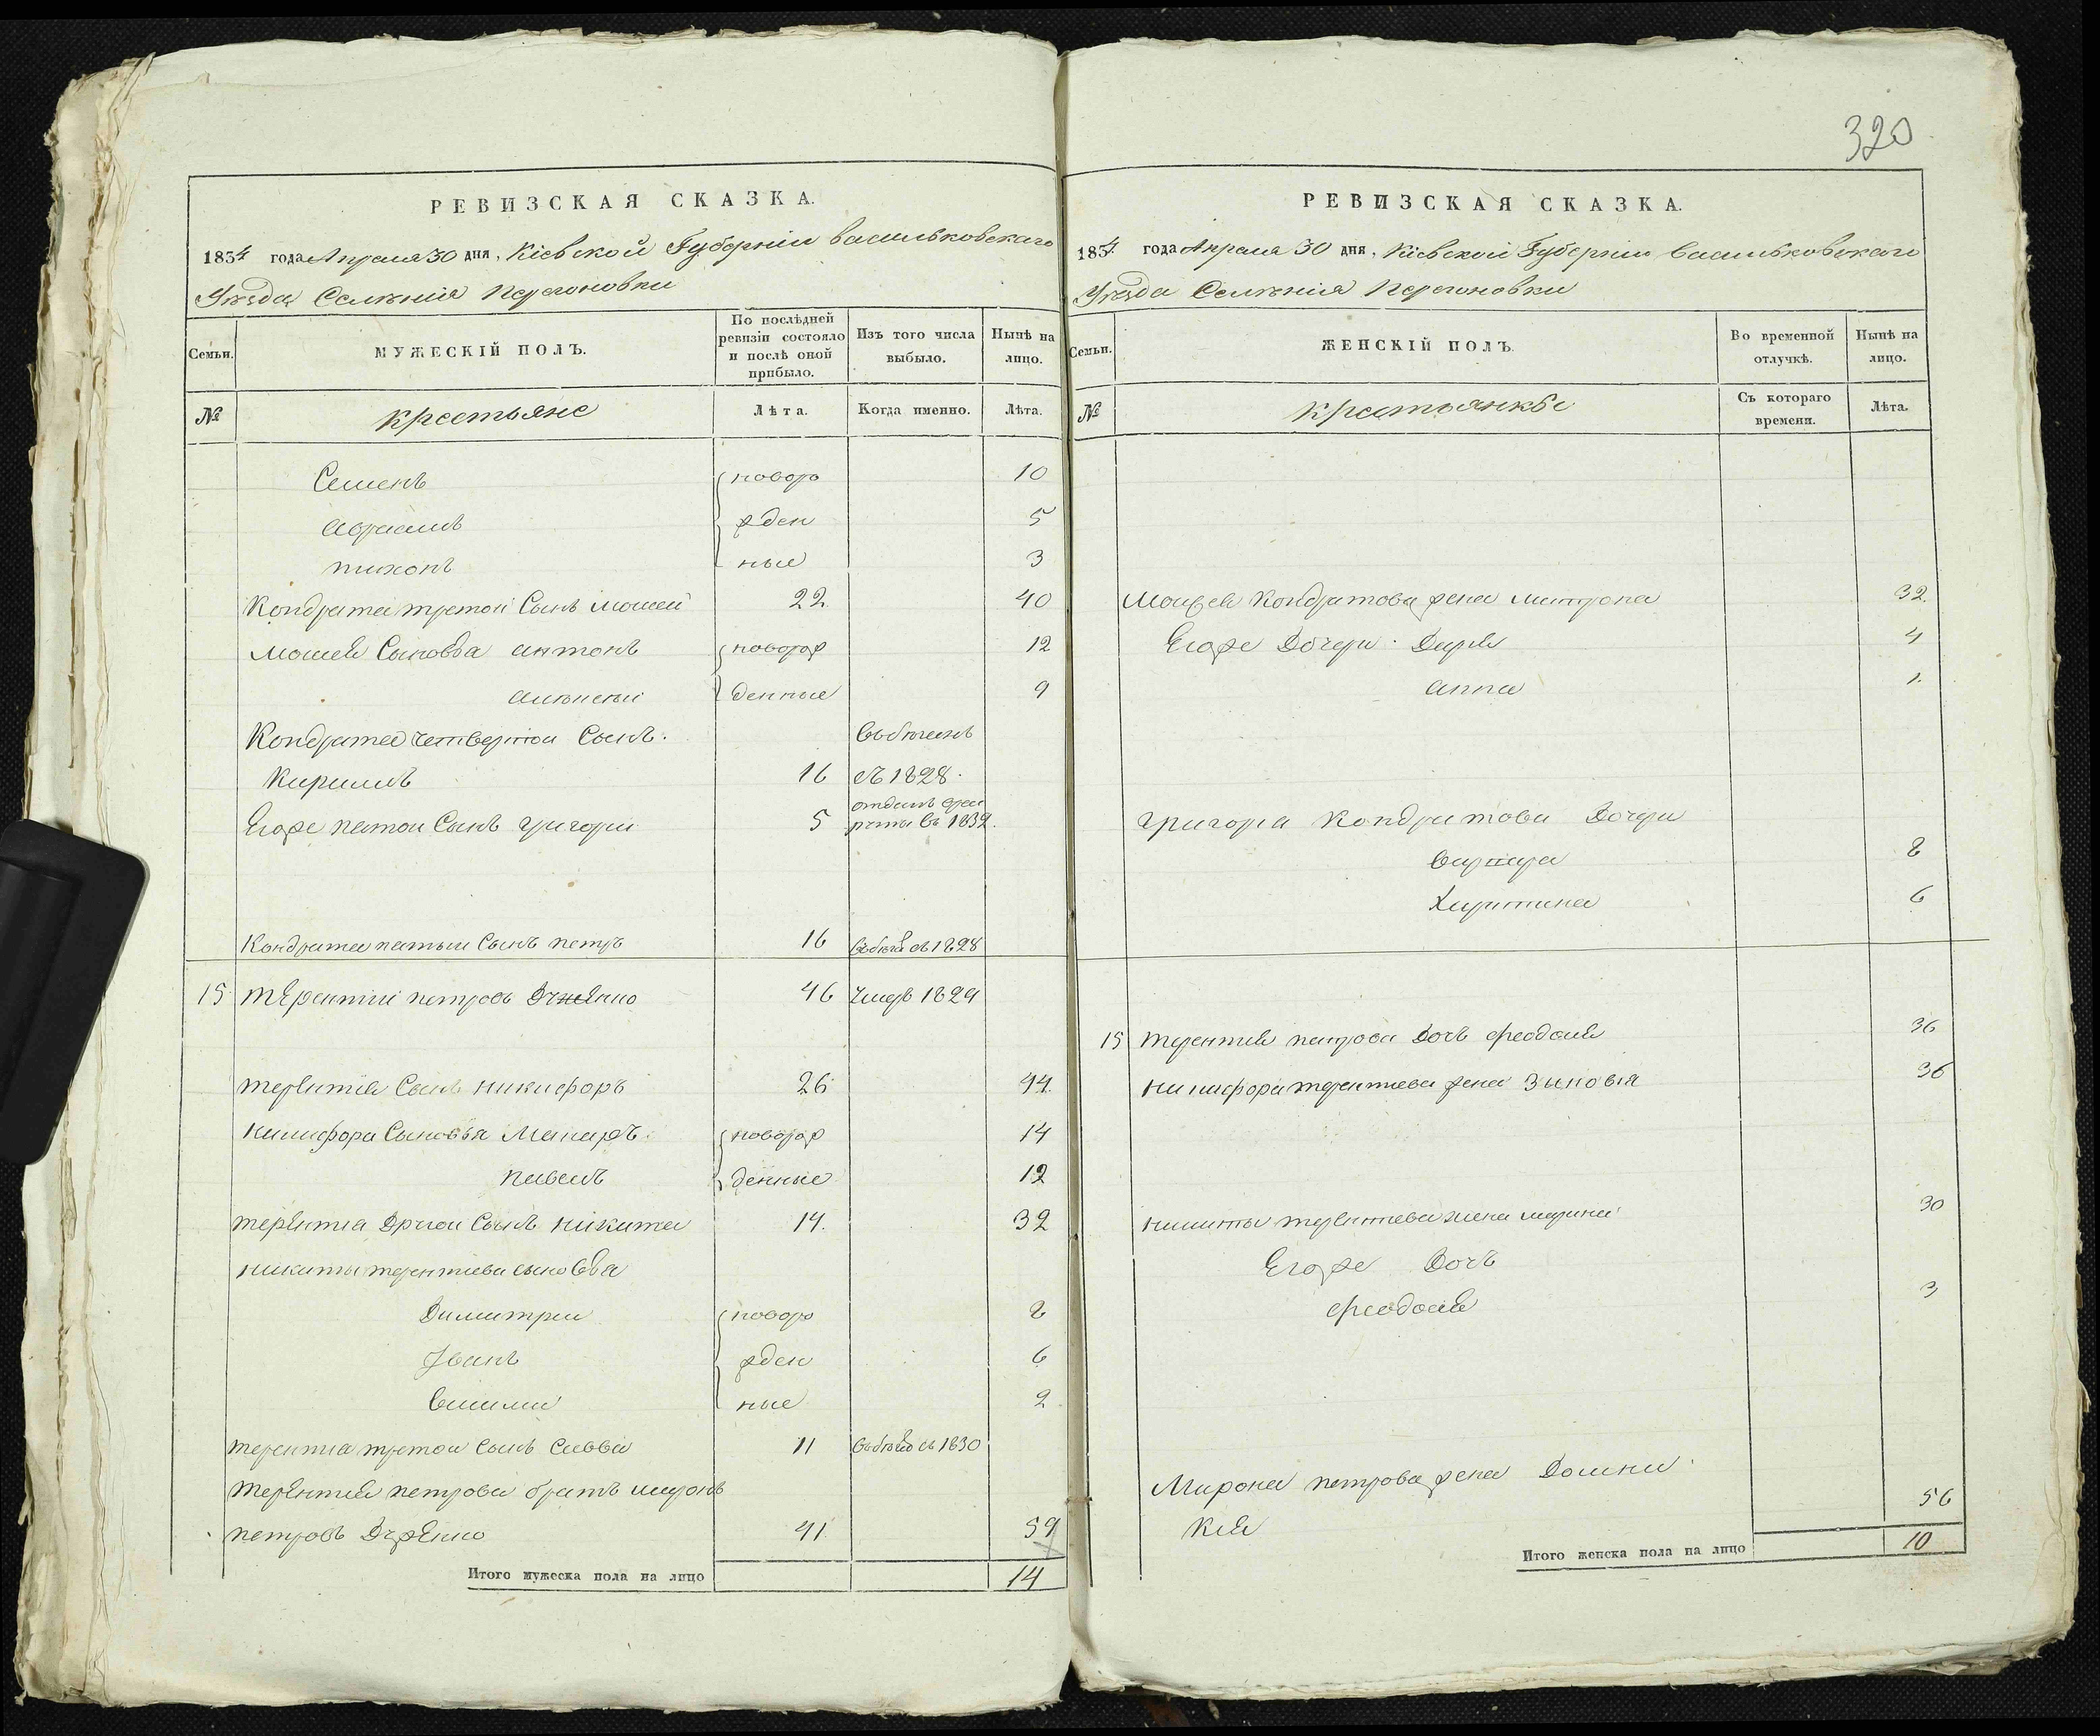 320
РЕВИЗСКАЯ СКАЗКА.
1834 года Апреля 30 дня, Кіевской Губерніи Васильковскаго
Уезда Селенія Перегоновки
Семьи.
МУЖЕСКІЙ ПОЛЪ.
По послѣдней ревизіи состояло и послѣ оной прибыло.
Изъ того числа выбыло.
Нынѣ на лицо.
№
крестьяне
Лѣта.
Когда именно.
Лѣта.
Семенъ новоро 10
Абрамъ жден 5
тихонъ ные 3
Кондрата третои Сынъ Мосей 22 40
Мосея Сыновья антонъ новорож 12
денные 9
Кондрата четвертои Сынъ.
Кирилъ 16 съ 1828.
отданъ
Егоже Сынъ григори 5 въ 1832.
Кондрата патыи Сынъ петръ 16 съ 1828
15 терентіи петровъ 46 умеръ 1829
терентия Сынъ никифоръ 26 44
никифора Сыновья Макаръ новорож 14
павелъ денные 12
терентиа Другои Сынъ никита 14. 32
никиты терентиева сыновья
Димитрии новоро 8
Іванъ жден 6
ные 2
терентиа третои Сынъ Савва 11 съ 1830
терентия петрова братъ миронъ
петровъ 41 59
Итого мужеска пола на лицо 14
РЕВИЗСКАЯ СКАЗКА.
1834 года Апреля 30 дня, Кіевской Губерніи Васильковскаго
Уезда Селенія Перегоновки
Семьи.
ЖЕНСКІЙ ПОЛЪ.
Во временной отлучкѣ.
Нынѣ на лицо.
№
крестьянкы
Съ котораго времени.
Лѣта.
Мосея Кондратова жена митрона 32
Егоже Дочери. Дарья 4
анна 1.
григора Кондратова Дочери
варвара 8
Харитина 6
15 терентия петрова Дочь феодосия 36
никифора терентиева жена Зыновья 36
никиты терентиева жена марина 30
Егоже Дочь
феодосия 3
Мирона петрова жена Домни
кия 56
Итого женска пола на лицо 10